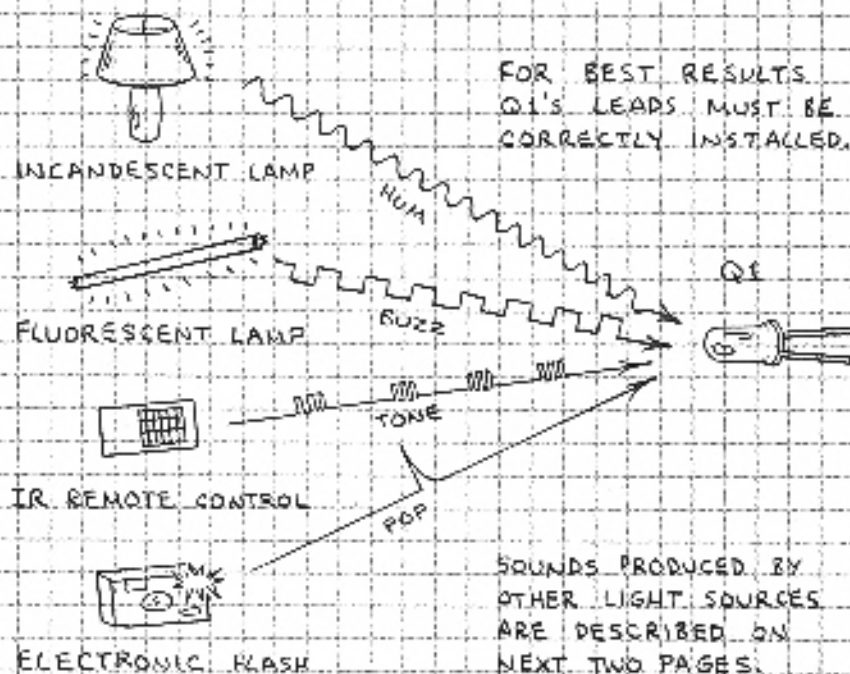 FOR BEST RESULTS
Q1'S LEADS MUST BE
CORRECTLY INSTALLED.
INCANDESCENT LAMP
HUM
Q1
FLUORESCENT LAMP
BUZZ
TONE
IR REMOTE CONTROL
POP
SOUNDS PRODUCED BY
OTHER LIGHT SOURCES
ARE DESCRIBED ON
NEXT TWO PAGES.
ELECTRONIC FLASH